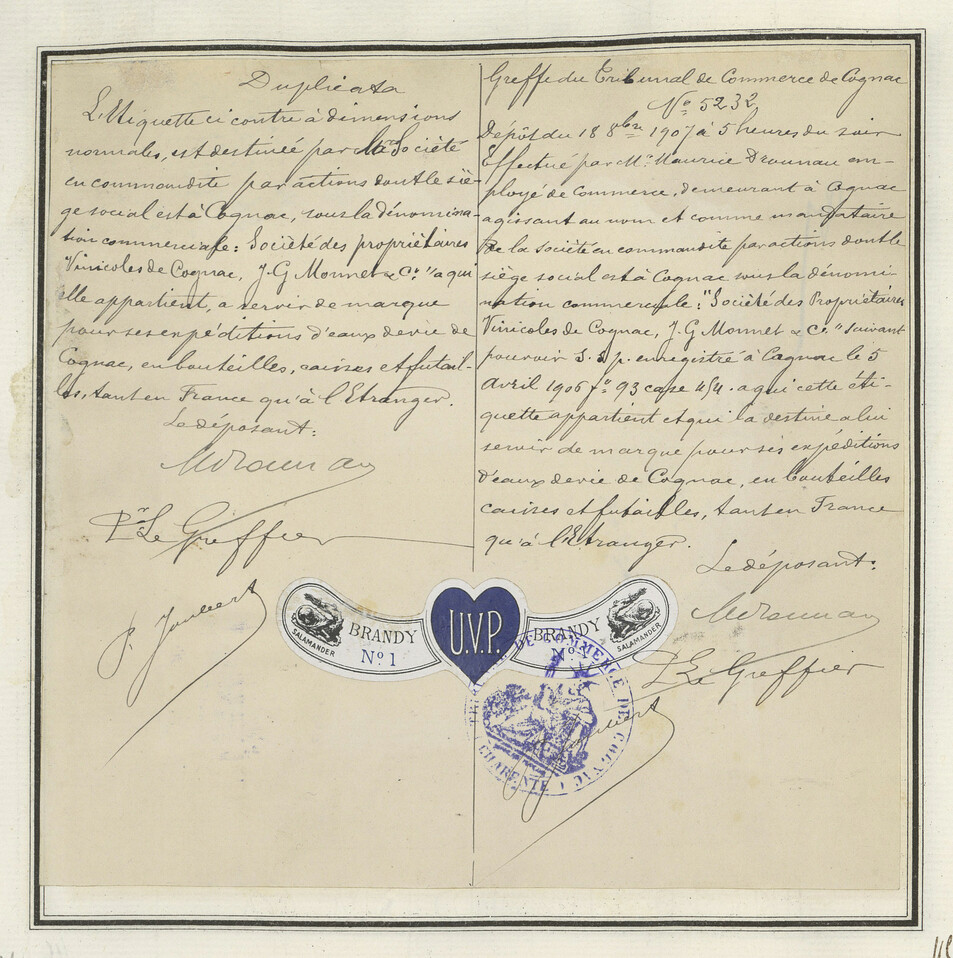 Duplicata
L'Etiquette ci contre à dimensions
normales, est destinée par la Société
en commandite par actions dont le siè-
ge social est à Cognac, sous la dénomina-
tion commerciale: Société des propriétaires
Vinicoles de Cognac, J. G Monnet & Cie" a qui
elle appartient, a servir de marque
pour ses expéditions d'eaux de vie de
Cognac, en bouteilles, caisses et futail-
les, tant en France qu'à l'Etranger.
Le déposant:
MDrounau
Pr Le Greffier
P. Joubert
Greffe du Tribunal de Commerce de Cognac
No 5232
Dépôt du 18 8bre 1907 à 5 heures du soir
Effectué par Mr Maurice Drounau em-
ployé de Commerce, demeurant à Cognac
agissant au nom et comme mandataire
de la Société en commandite par actions dont le
siège social est à Cognac sous la dénomi-
nation commerciale: "Société des Propriétaires
Vinicoles de Cognac, J. G Monnet & Cie" suivant
pouvoir S. S. p. enregistré à Cognac le 5
Avril 1906 fo 93 case 4/4. a qui cette éti-
quette appartient et qui la destine a lui
servir de marque pour ses expéditions
d'eaux de vie de Cognac, en bouteilles
caisses et futailles, tant en France
qu'à l'Etranger.
Le déposant:
MDrounau
Pr Le Greffier
Joubert
SALAMANDER
BRANDY
No 1
U.V.P.
BRANDY
No
SALAMANDER
TRIBUNAL DE COMMERCE DE COGNAC
CHARENTE